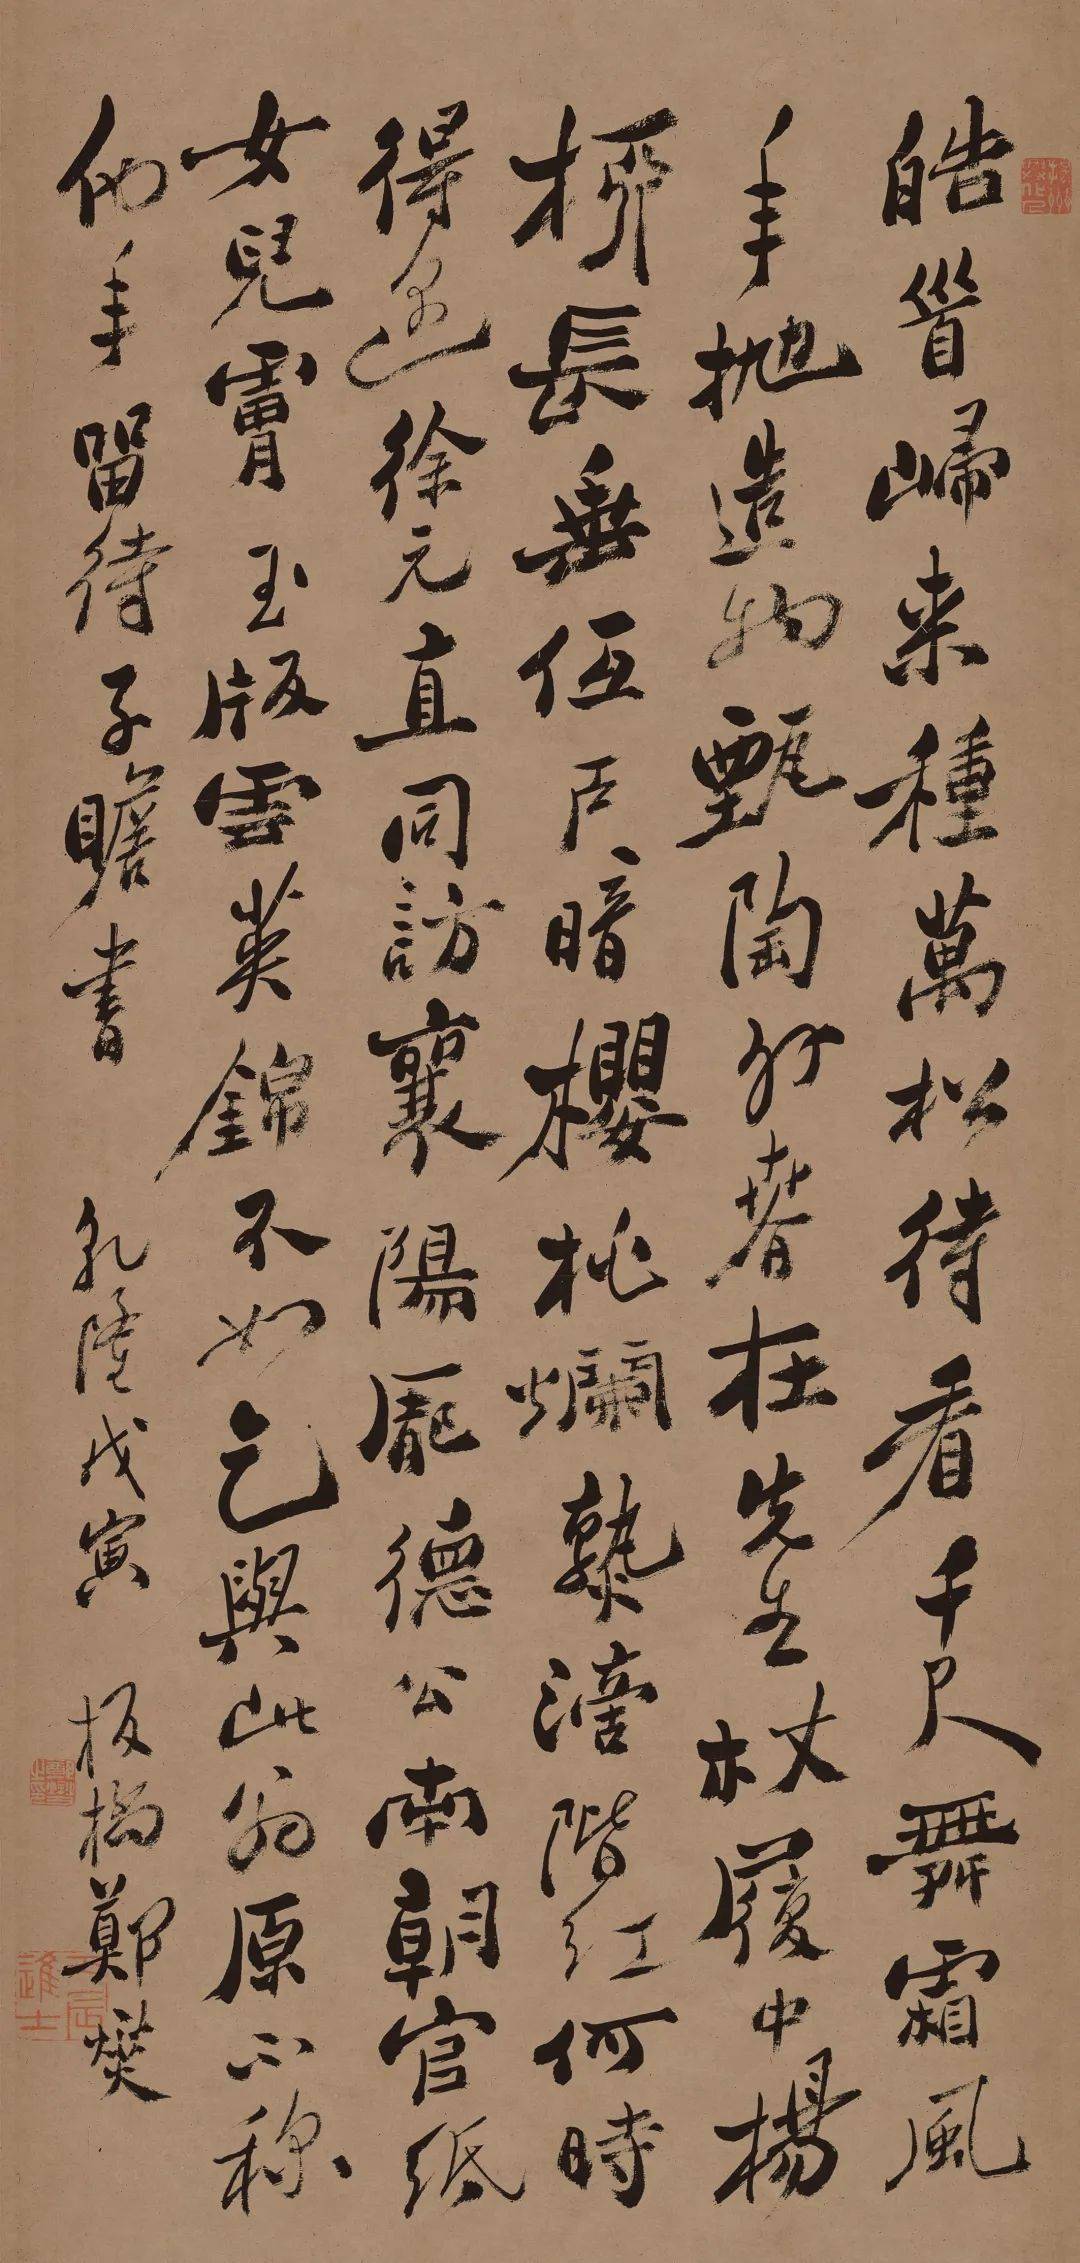 皓首歸来種萬松待看千尺舞霜風
年抛造物甄陶外春在先生杖履中楊
栁長垂低戶暗櫻桃爛熟滴階紅何時
得徐元直同訪襄陽龐德公南朝官紙
女兒膚玉版雲英錦不如乞與此翁原不称
他年留待子瞻書 乾隆戊寅 板橋鄭燮
丙辰進士